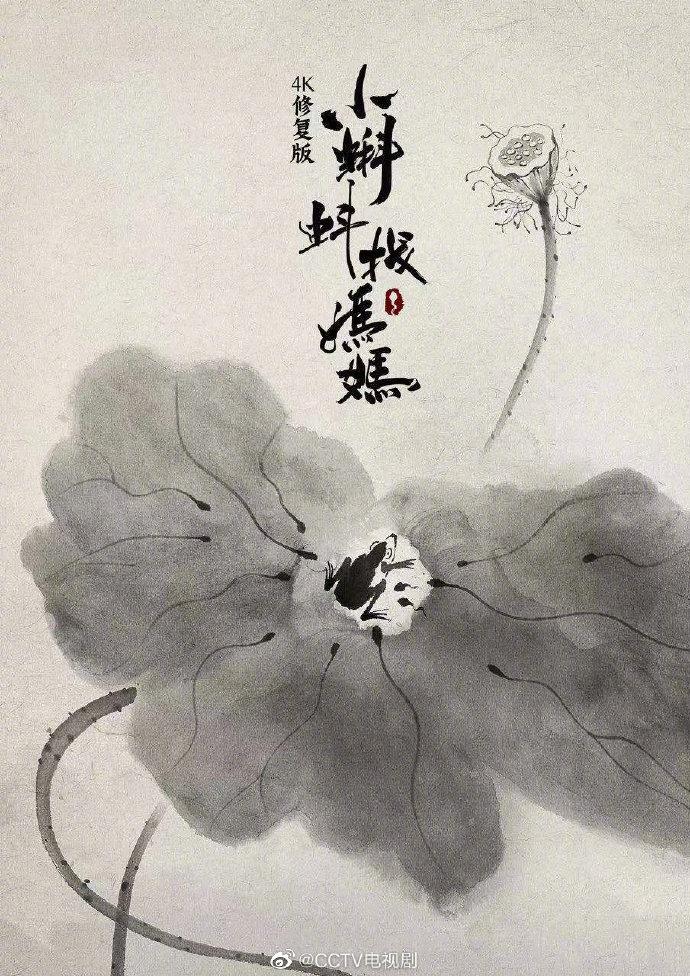 4K修复版
小蝌蚪找媽媽
@CCTV电视剧